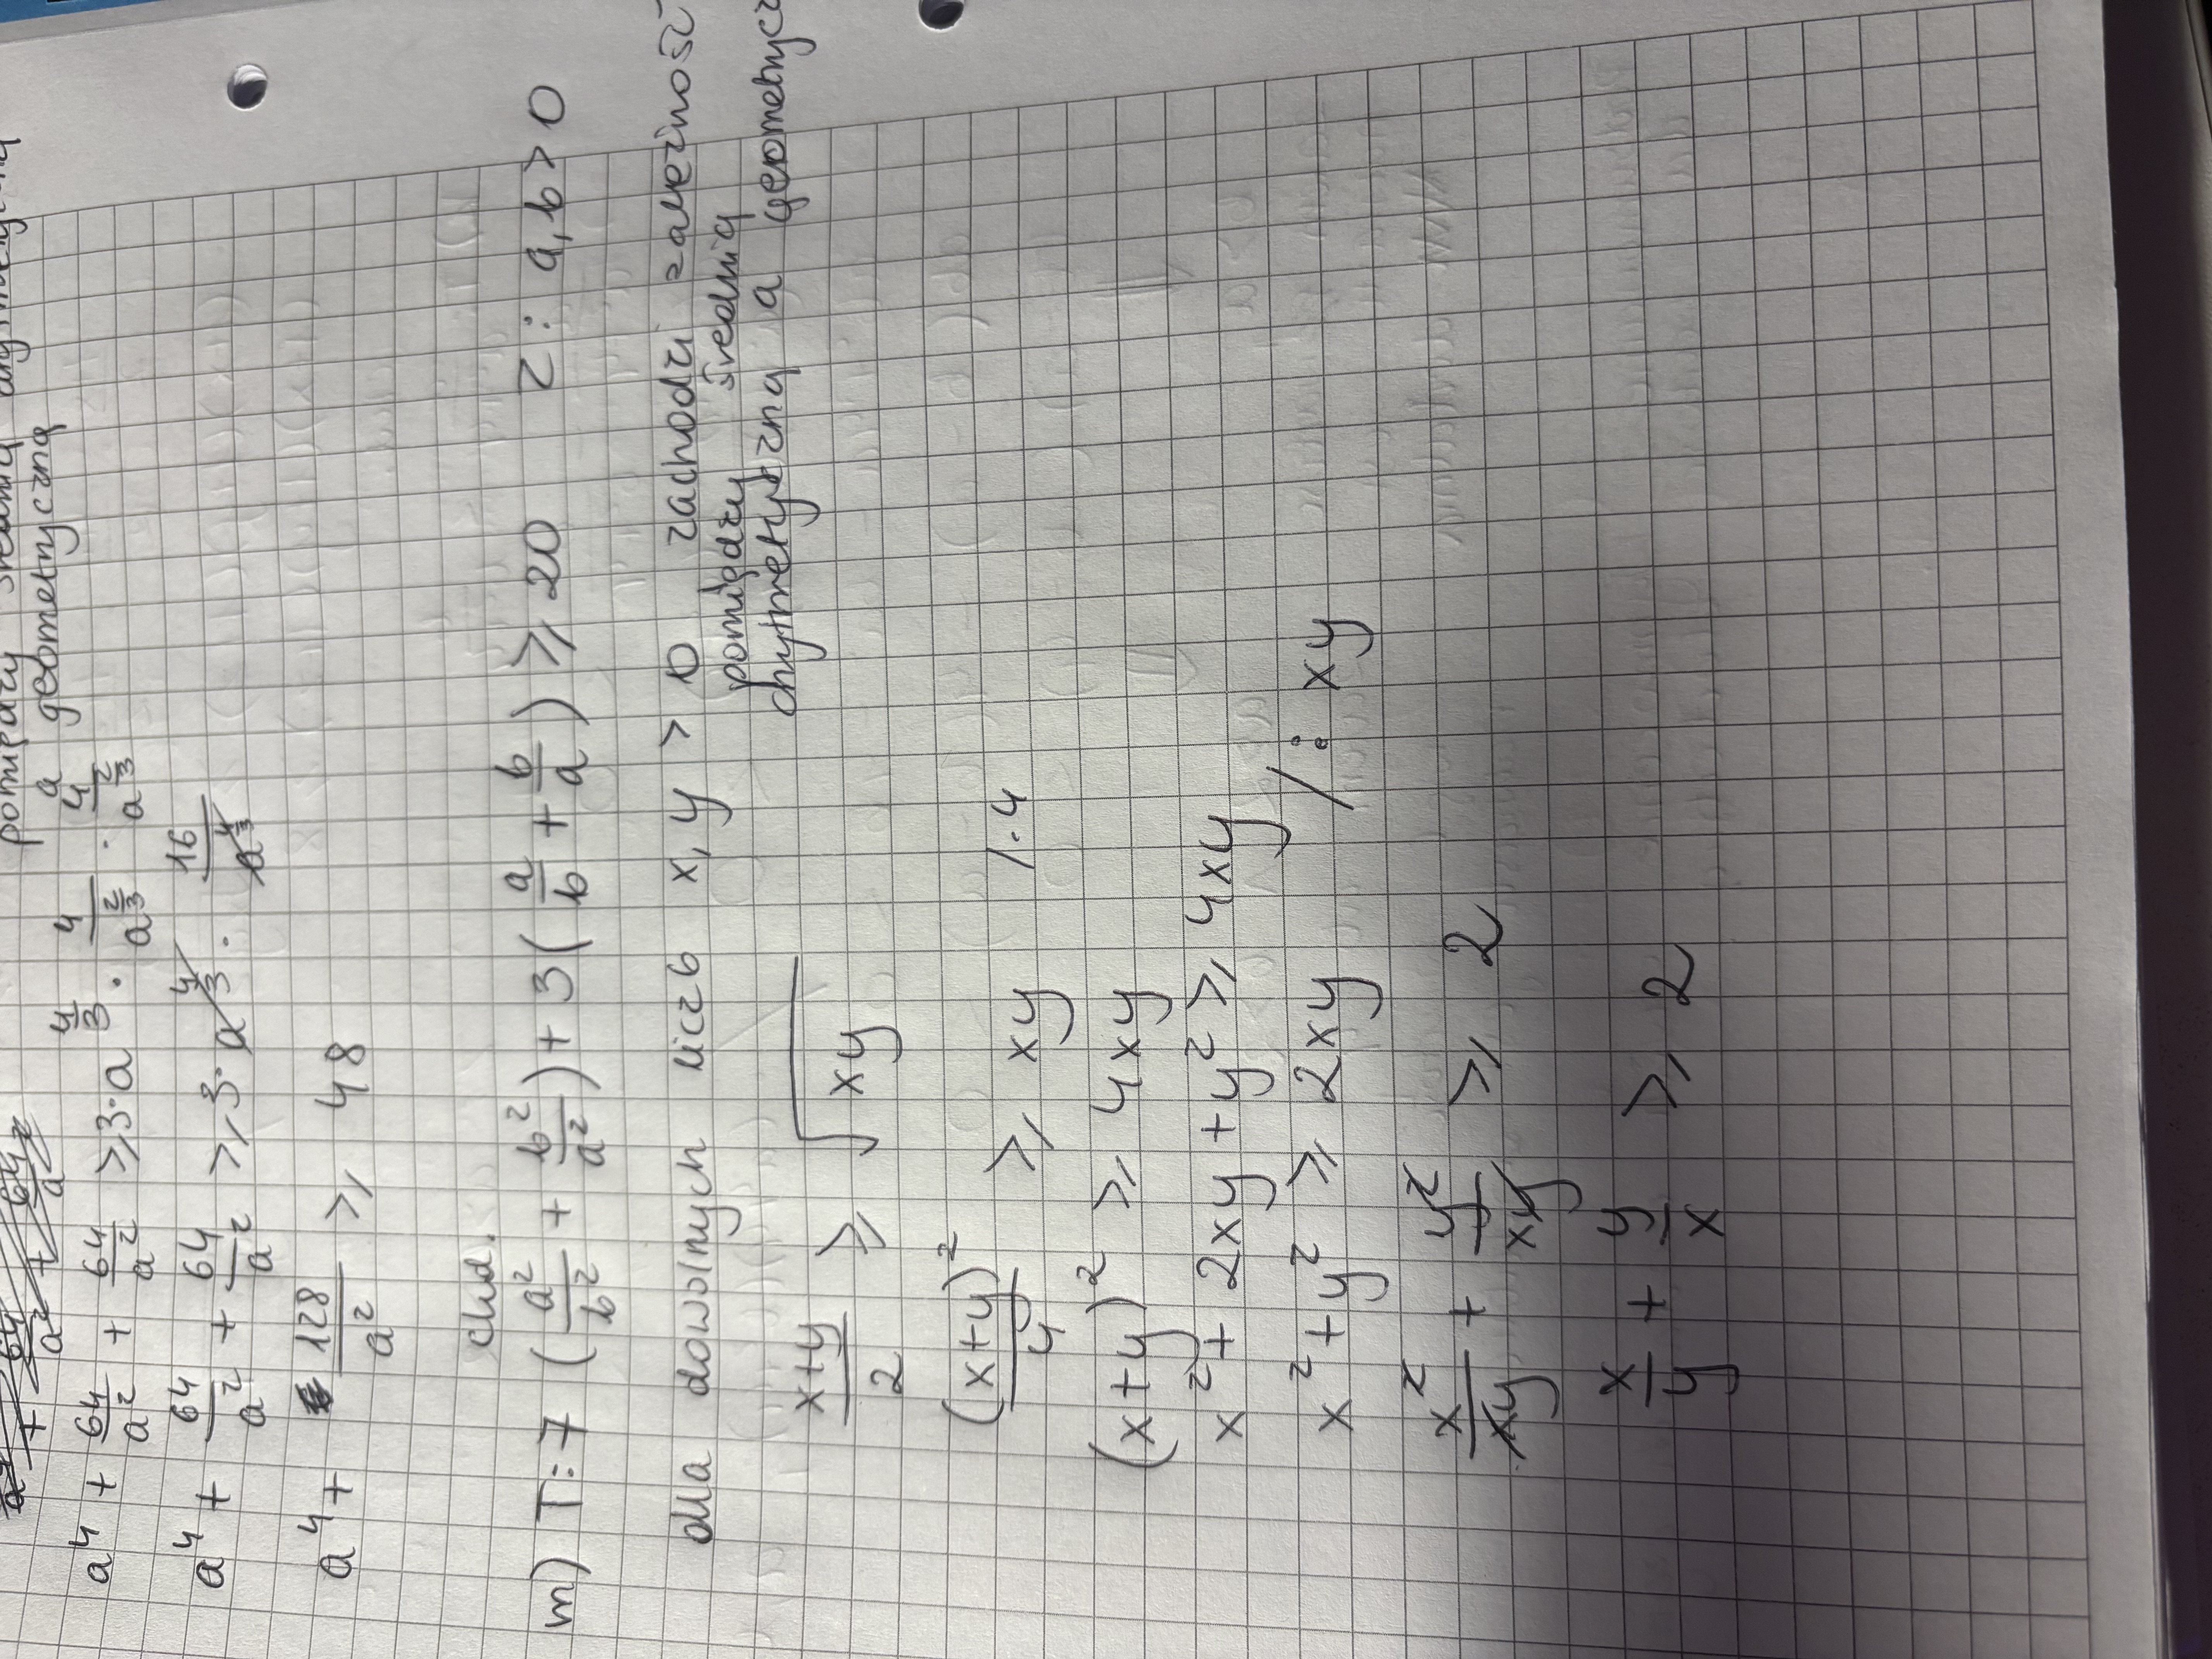 pomiędzy średnią arytmetyczną
a geometryczną
a⁴ + 64/a² + 64/a² ⩾ 3·a^(4/3) · 4/a^(2/3) · 4/a^(2/3)
a⁴ + 64/a² + 64/a² ⩾ 3·a^(4/3) · 16/a^(4/3)
a⁴ + 128/a² ⩾ 48
cknd.
m) T: 7 (a²/b² + b²/a²) + 3(a/b + b/a) ⩾ 20 Z: a, b > 0
dla dowolnych liczb x, y > 0 zachodzi zależność
pomiędzy średnią
arytmetyczną a geometrycz
(x+y)/2 ⩾ √xy
(x+y)²/4 ⩾ xy /·4
(x+y)² ⩾ 4xy
x² + 2xy + y² ⩾ 4xy
x² + y² ⩾ 2xy / : xy
x²/xy + y²/xy ⩾ 2
x/y + y/x ⩾ 2